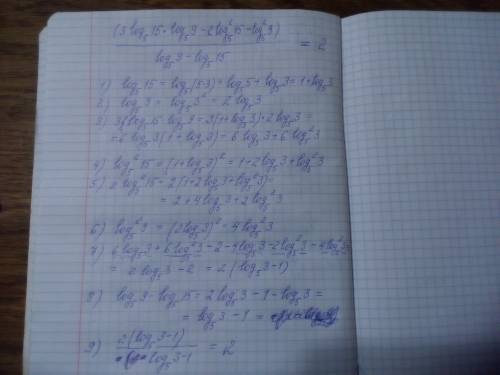 (3 log₅15·log₅9 − 2log₅²15 − log₅²9)
log₅9 − log₅15
= 2
1) log₅15 = log₅(5·3) = log₅5 + log₅3 = 1 + log₅3
2) log₅9 = log₅3² = 2 log₅3
3) 3 log₅15·log₅9 = 3(1 + log₅3)·2 log₅3 =
= 6 log₅3 (1 + log₅3) = 6 log₅3 + 6 log₅²3
4) log₅²15 = (1 + log₅3)² = 1 + 2 log₅3 + log₅²3
5) 2 log₅²15 = 2(1 + 2 log₅3 + log₅²3) =
= 2 + 4 log₅3 + 2 log₅²3
6) log₅²9 = (2 log₅3)² = 4 log₅²3
7) 6 log₅3 + 6 log₅²3 − 2 − 4 log₅3 − 2 log₅²3 − 4 log₅²3 =
= 2 log₅3 − 2 = 2 (log₅3 − 1)
8) log₅9 − log₅15 = 2 log₅3 − 1 − log₅3 =
= log₅3 − 1 =
9) 2(log₅3 − 1)
log₅3 − 1
= 2